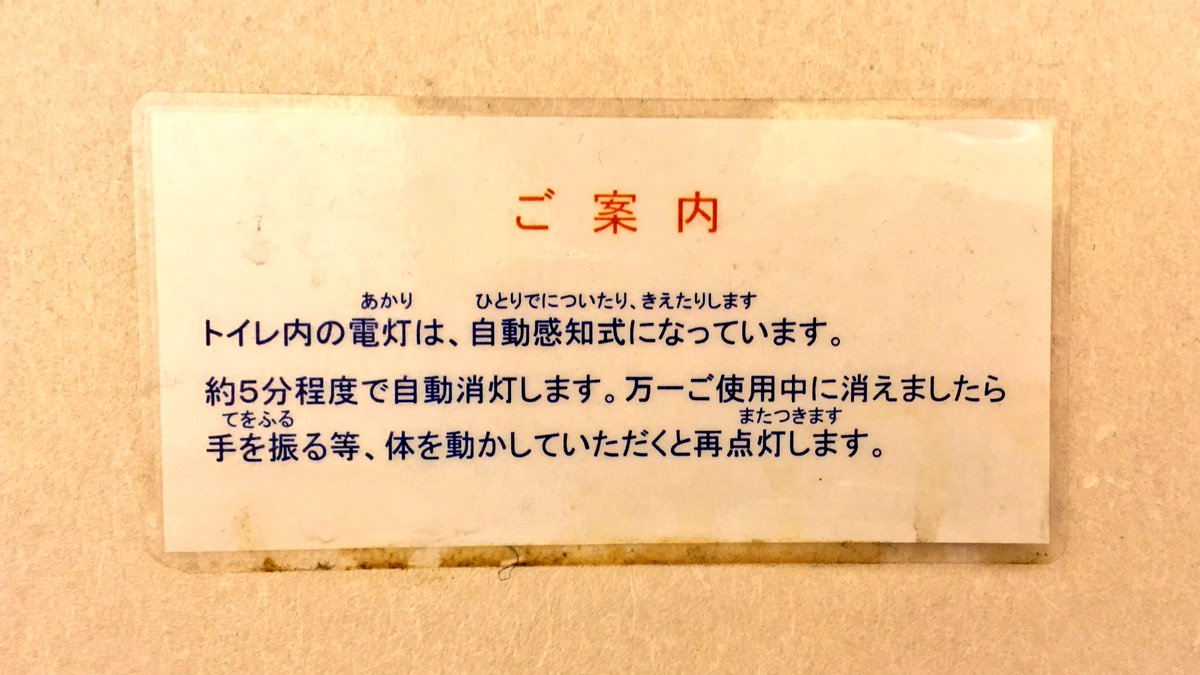 ご案内
あかり ひとりでについたり、きえたりします
トイレ内の電灯は、自動感知式になっています。
約5分程度で自動消灯します。万一ご使用中に消えましたら
てをふる またつきます
手を振る等、体を動かしていただくと再点灯します。